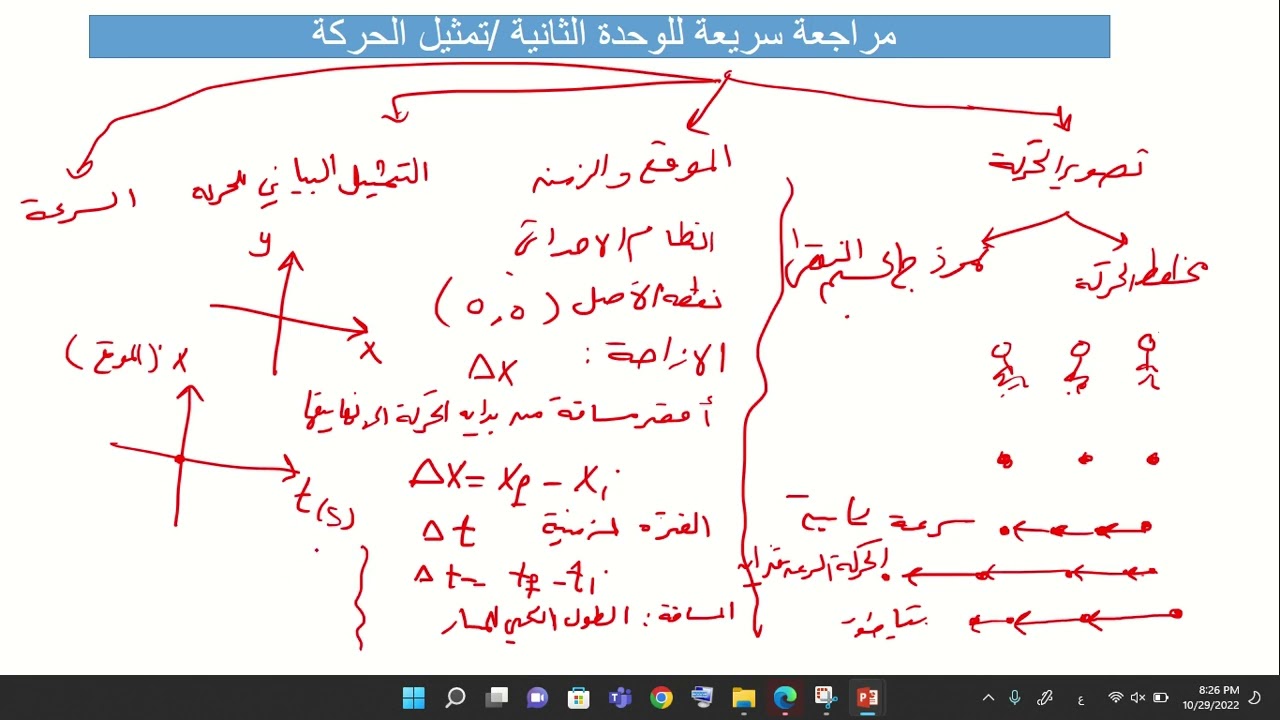 مراجعة سريعة للوحدة الثانية /تمثيل الحركة
تصوير الحركة
مخطط الحركة
نموذج الجسم النقطي
سرعة
الحركة السرعة تتزايد
الموقع والزمن
النظام الاحداثي
نقطة الأصل (0,0)
الازاحة : Δx
أقصر مسافة من بداية الحركة الى نهايتها
Δx = xf - xi
الفترة الزمنية Δt
Δt = tf - ti
المسافة : الطول الكلي للمسار
التمثيل البياني للحركة
y
x
x (الموقع)
t(s)
السرعة
8:26 PM
10/29/2022
ع